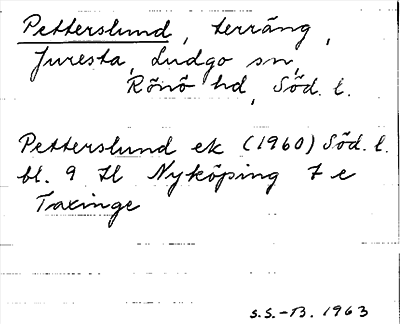 Petterslund, terräng,
Juresta, Ludgo sn,
Rönö hd, Söd. l.
Petterslund ek (1960) Söd. l.
bl. 9 Il Nyköping 7 e
Taxinge
S.S.-B. 1963